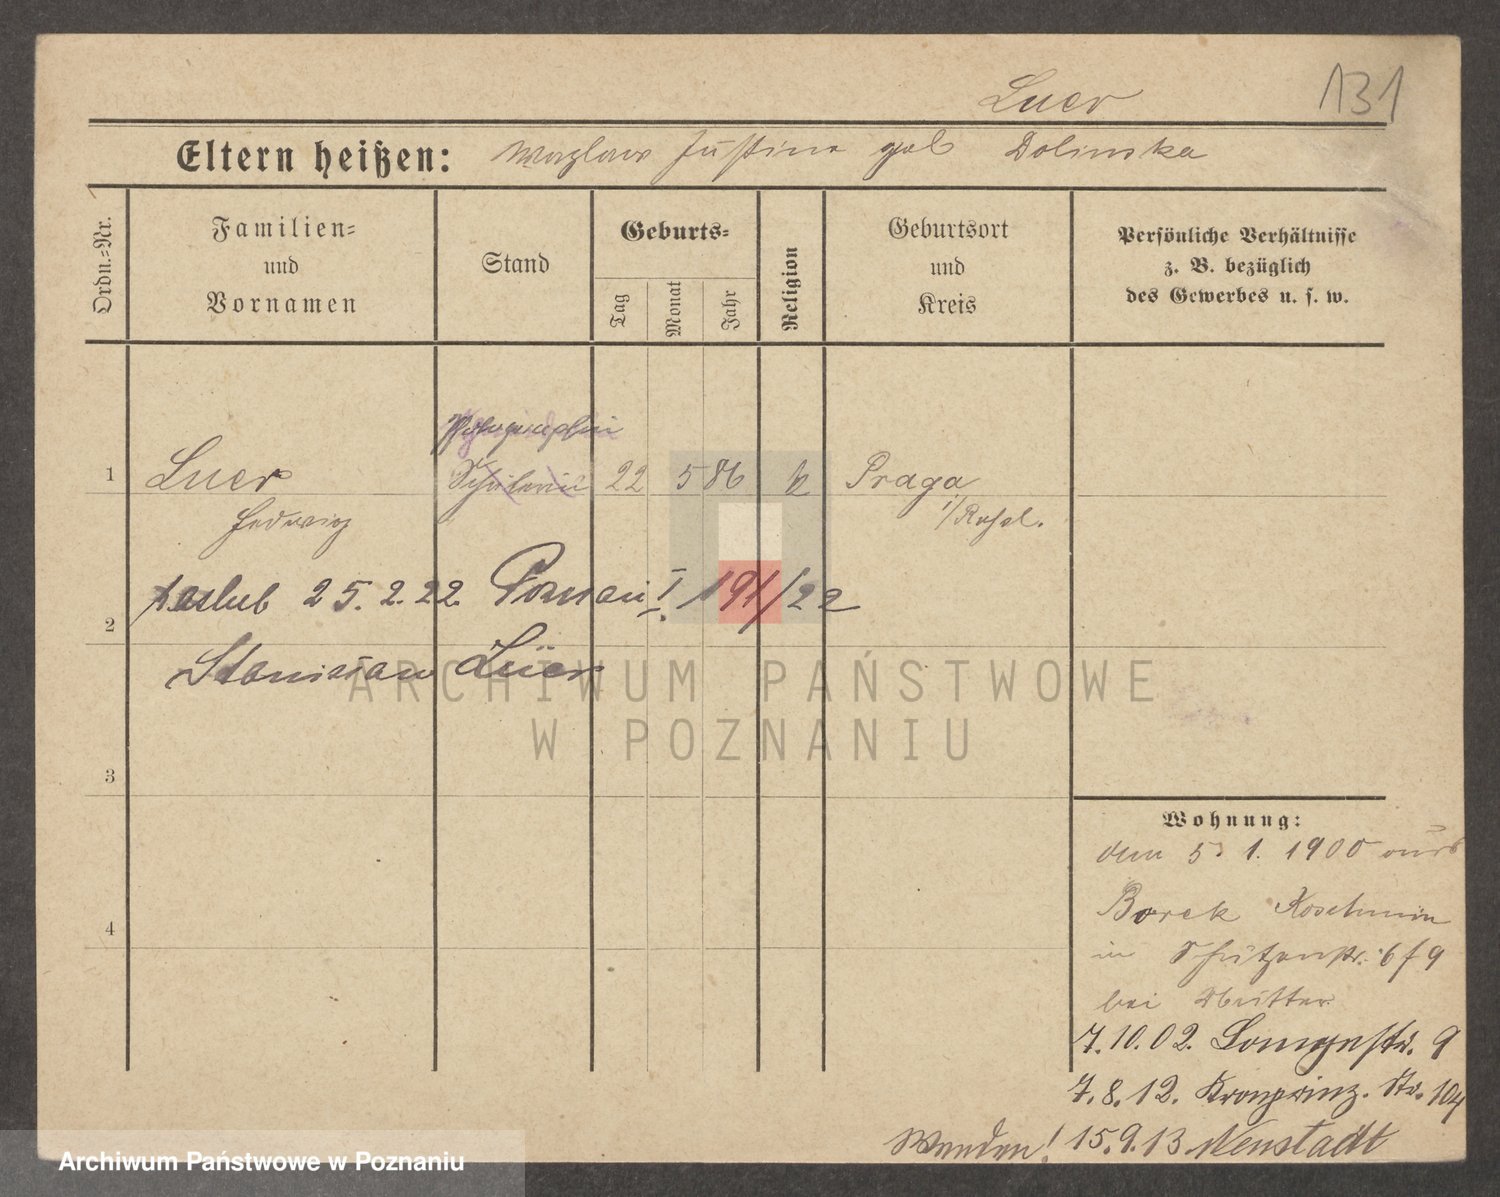 131
Luer
Eltern heißen: Wazlaw Justina geb Dolinska
Ordn.=Nr.
Familien=
und
Vornamen
Stand
Geburts=
Tag
Monat
Jahr
Religion
Geburtsort
und
Kreis
Persönliche Verhältnisse
z. B. bezüglich
des Gewerbes u. s. w.
Photographin
1 Luer Schülerin 22 5 86 k Praga
Hedwig i/Rußl.
aslub 25.2.22. Poznań I. 191/22
2
Stanisław Lüer
ARCHIWUM PAŃSTWOWE
W POZNANIU
3
4
Wohnung:
dem 5. 1. 1900 aus
Borek Koschmin
in Schützenstr. 6 f 9
bei Mutter
7.10.02. Langestr. 9
7.8.12. Kronprinz. Str. 104
Wenden! 15.9.13 Neustadt
Archiwum Państwowe w Poznaniu